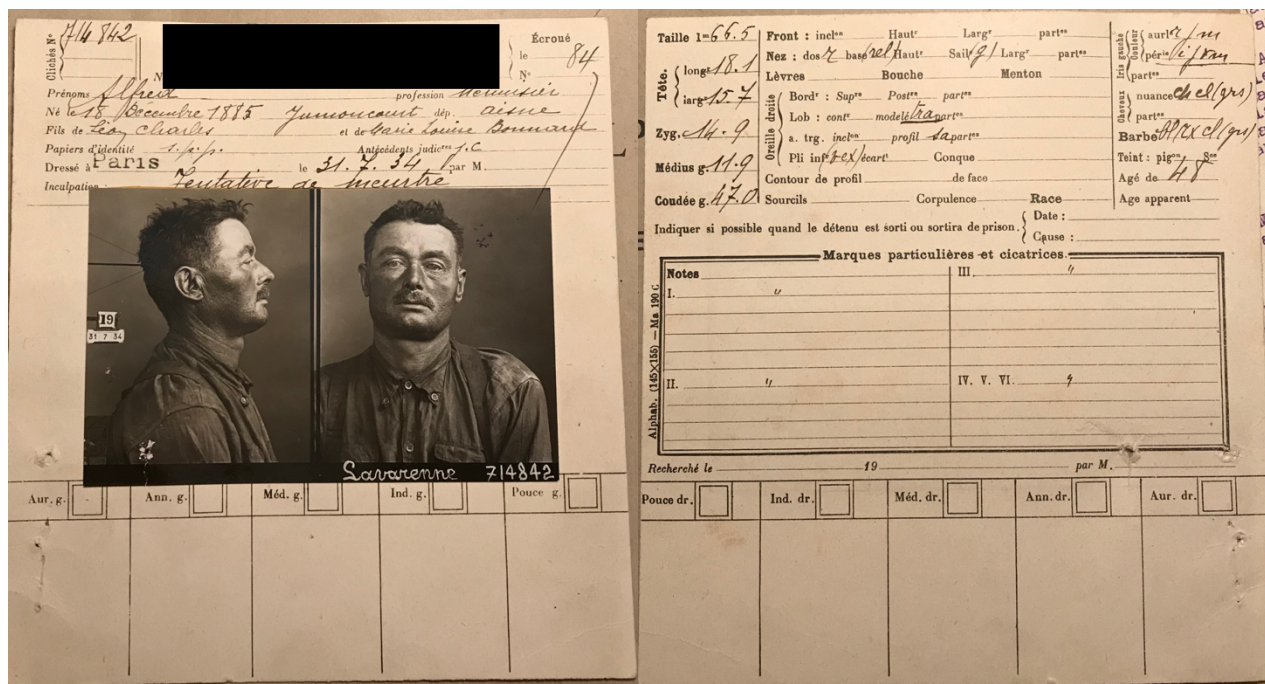 Clichés N° 714 842
Écroué
le 84
N°
Prénoms Alfred profession Menuisier
Né le 18 Décembre 1885 Jumoncourt dép. aisne
Fils de Léon Charles et de Marie Louise Bonnard
Papiers d'identité s.p.p. Antécédents judicres j.C
Dressé à Paris le 31.7.34 par M.
Inculpation : Tentative de meurtre
19
31 7 34
Lavarenne 714842
Aur. g. Ann. g. Méd. g. Ind. g. Pouce g.
Taille 1m 66.5
Tête.
longr 18.1
largr 15.7
Zyg. 14.9
Médius g. 11.9
Coudée g. 47.0
Front : inclon Hautr Largr partes
Nez : dos base Hautr Sail Largr partes
Lèvres Bouche Menton
Oreille droite
Bordr : Supre Postre partes
Lob : contr modelé partes
a. trg. inclon profil partes
Pli infr écartt Conque
Contour de profil de face
Sourcils Corpulence Race
Iris gauche
Couleur
aurle
périe
partes
Cheveux
nuance ch cl (grs)
partes
Barbe cl (grs)
Teint : pigon Sse
Agé de 48
Age apparent
Indiquer si possible quand le détenu est sorti ou sortira de prison.
Date :
Cause :
Marques particulières et cicatrices.
Notes
I. "
II. "
III. "
IV. V. VI. "
Alphab. (145×155) — Ma 190 C
Recherché le 19 par M.
Pouce dr. Ind. dr. Méd. dr. Ann. dr. Aur. dr.